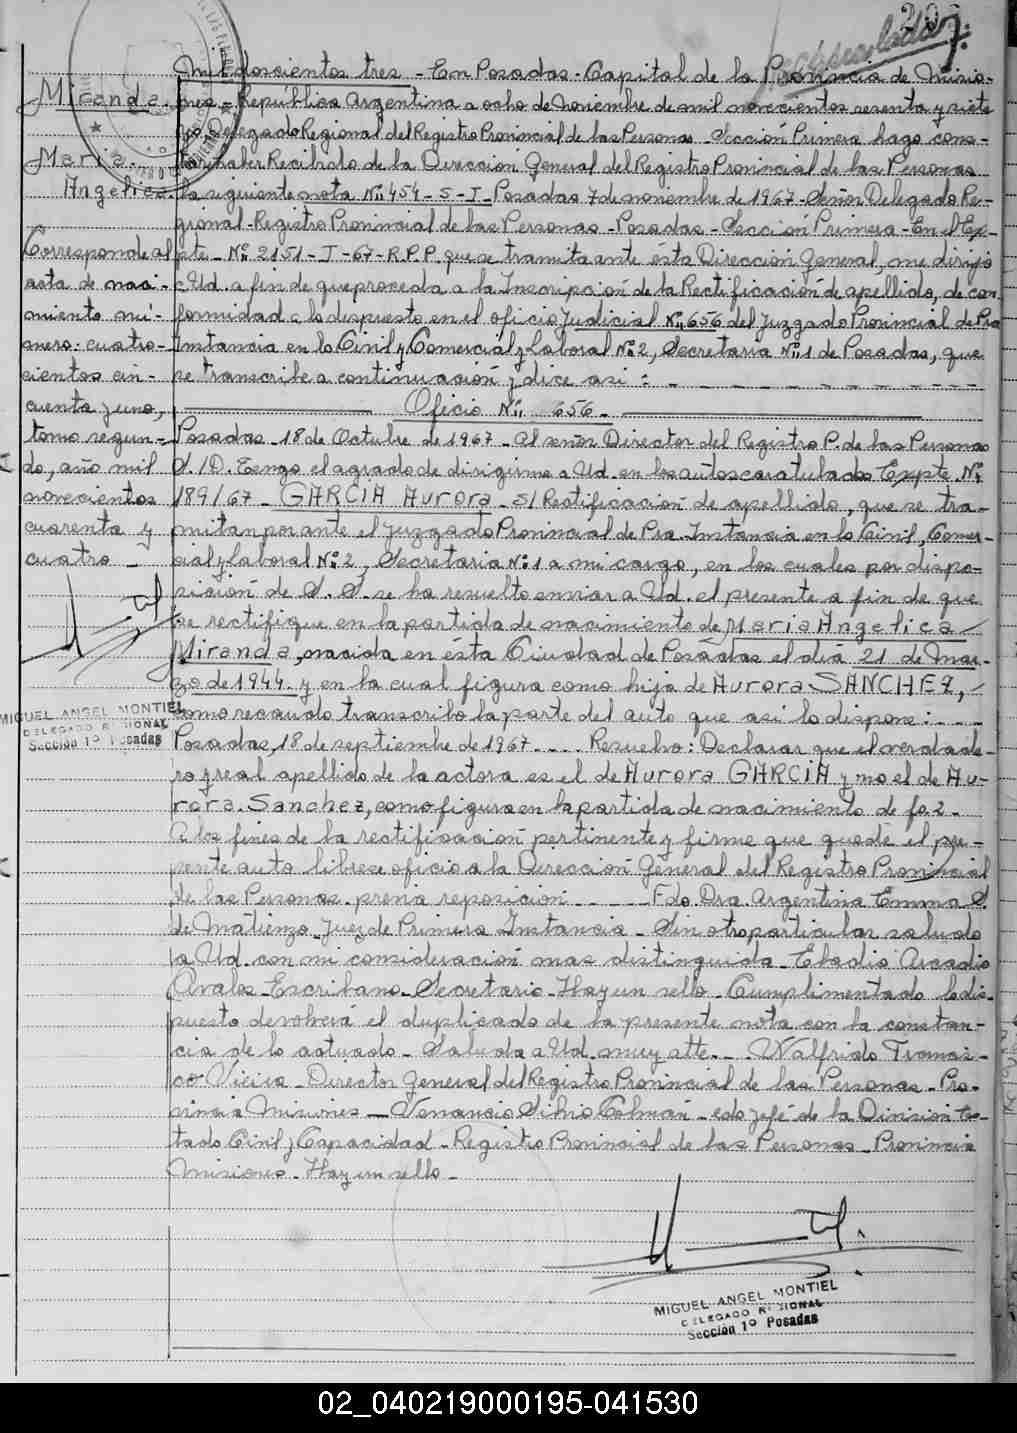 203
Miranda.
Maria.
Angelica.
Corresponde al
acta de naci-
miento nú-
mero: cuatro-
cientos cin-
cuenta y uno,
tomo segun-
do, año mil
novecientos
cuarenta y
cuatro -
MIGUEL ANGEL MONTIEL
DELEGADO REGIONAL
Sección 1º Posadas
Mil doscientos tres - En Posadas - Capital de la Provincia de Misio-
nes - República Argentina a ocho de noviembre de mil novecientos sesenta y siete
Delegado Regional del Registro Provincial de las Personas - Sección Primera hago cons-
tar haber Recibido de la Dirección General del Registro Provincial de las Personas
la siguiente nota Nº 454 - S - I - Posadas 7 de noviembre de 1967 - Señor Delegado Re-
gional - Registro Provincial de las Personas - Posadas - Sección Primera - En el Ex-
pte - Nº 2151 - I - 67 - R.P.P que se tramita ante ésta Dirección General, me dirijo
a Ud. a fin de que proceda a la Inscripción de la Rectificación de apellido, de con
formidad a lo dispuesto en el oficio Judicial Nº 656 del Juzgado Provincial de Pra
Instancia en lo Civil y Comercial y Laboral Nº 2, Secretaria Nº 1 de Posadas, que
se transcribe a continuación y dice asi : -
Oficio Nº 656 -
Posadas - 18 de Octubre de 1967 - Al señor Director del Registro P. de las Personas
S. / D. Tengo el agrado de dirigirme a Ud. en los autos caratulados Expte Nº
189/67 - GARCIA Aurora - S/ Rectificación de apellido, que se tra-
mitan por ante el Juzgado Provincial de Pra. Instancia en lo Civil, Comer-
cial y Laboral Nº 2, Secretaria Nº 1 a mi cargo, en los cuales por dispo-
sición de S. S. se ha resuelto enviar a Ud. el presente a fin de que
se rectifique en la partida de nacimiento de Maria Angelica
Miranda, nacida en ésta Ciudad de Posadas el dia 21 de Mar-
zo de 1944. y en la cual figura como hija de Aurora SANCHEZ,
como recaudo transcribo la parte del auto que asi lo dispone: - - -
Posadas, 18 de septiembre de 1967 - - - Resuelvo: Declarar que el verdade-
ro y real apellido de la actora es el de Aurora GARCIA y no el de Au-
rora. Sanchez, como figura en la partida de nacimiento de fs. 2 -
A los fines de la rectificación pertinente y firme que quede el pre-
sente auto librese oficio a la Dirección General del Registro Provincial
de las Personas. previa reposición - - - Fdo. Dra. Argentina Emma S.
de Matienzo - Juez de Primera Instancia - Sin otro particular saludo
a Ud. con mi consideración mas distinguida - Eladio Arcadio
Avalos - Escribano - Secretario - Hay un sello - Cumplimentado lo dis-
puesto devolverá el duplicado de la presente nota con la constan-
cia de lo actuado - Saluda a Ud. muy atte. - Walfrido
Vieira - Director General del Registro Provincial de las Personas - Pro-
vincia Misiones - Venancio Silvio Colman - edo Jefé de la División Es-
tado Civil y Capacidad - Registro Provincial de las Personas - Provincia
Misiones - Hay un sello -
MIGUEL ANGEL MONTIEL
DELEGADO REGIONAL
Sección 1º Posadas
02_040219000195-041530